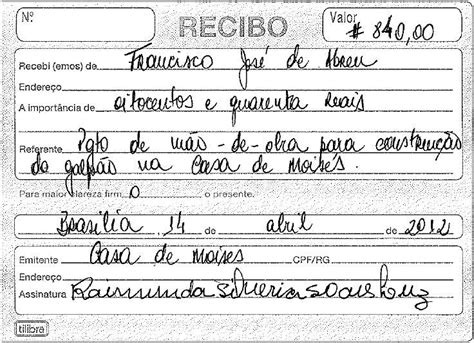 Nº RECIBO Valor # 840,00
Recebi (emos) de Francisco José de Abreu
Endereço
A importância de oitocentos e quarenta reais
Referente Pgto de mão-de-obra para construção
do galpão na Casa de Moisés.
Para maior clareza firm o o presente.
Brasília 14 de abril de 2012
Emitente Casa de Moises CPF/RG
Endereço
Assinatura Raimunda Silveria Soares Luz
tilibra